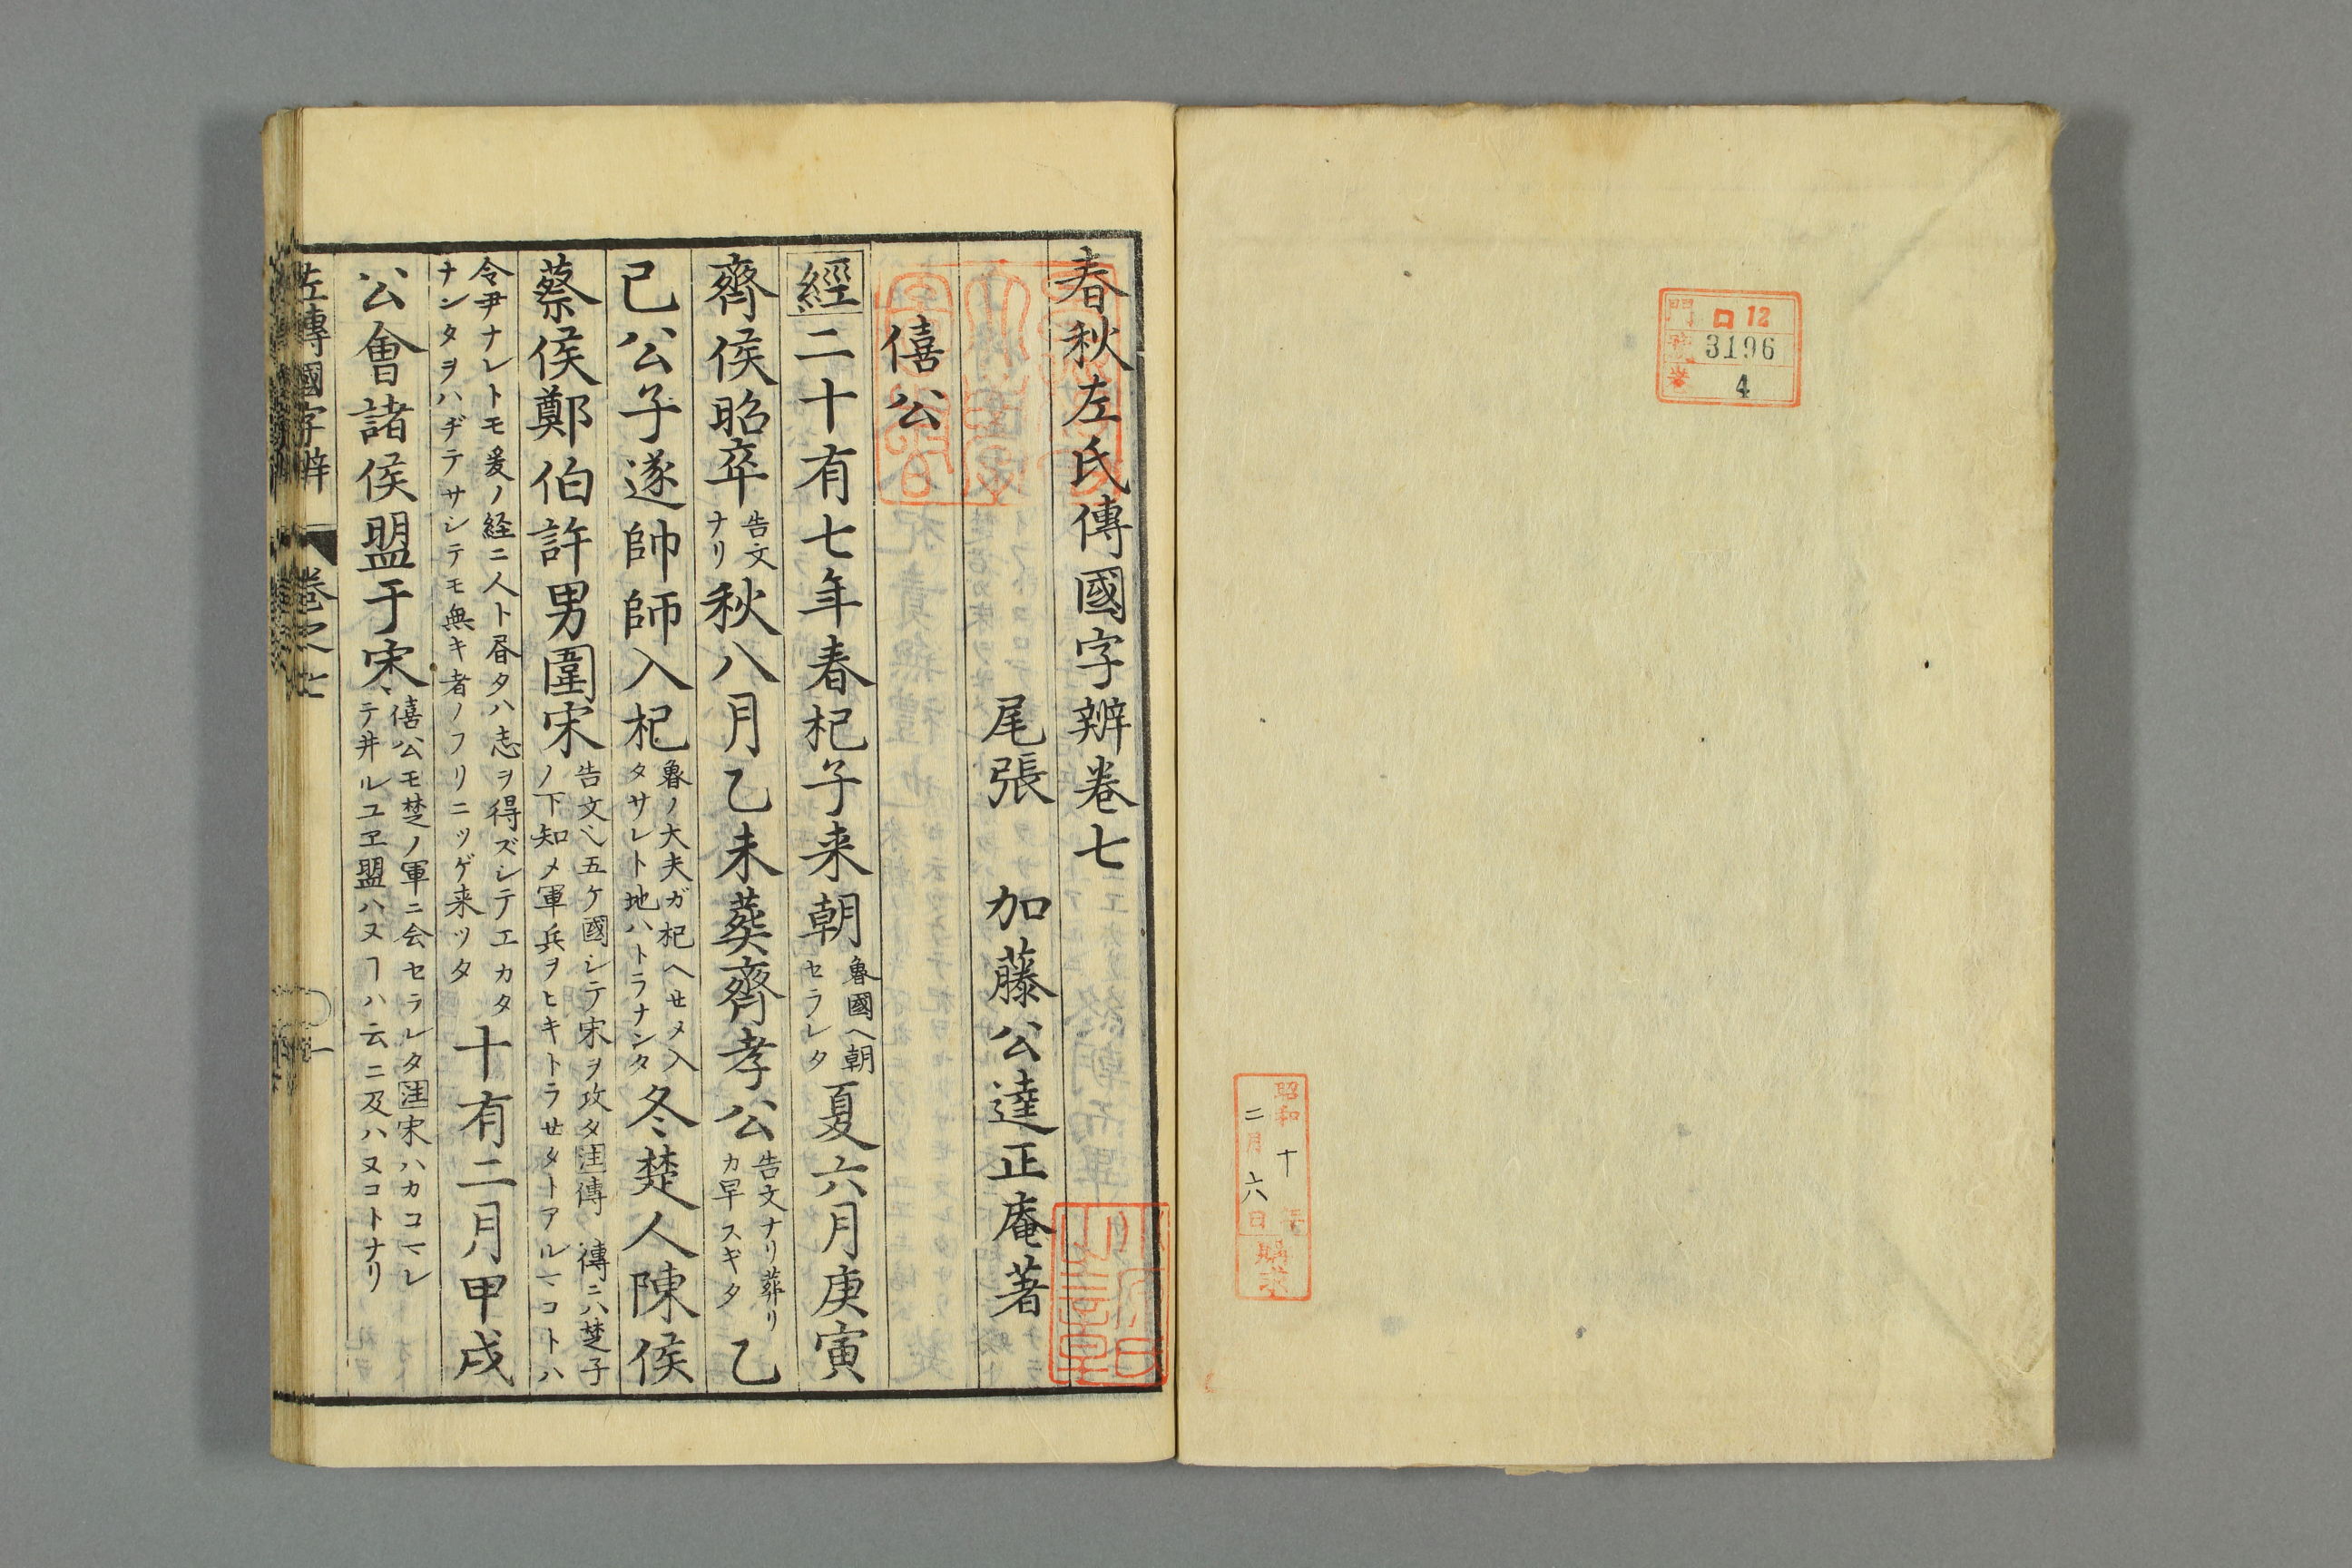 門 ロ 12
號 3196
巻 4
昭和十年
二月六日
購求
春秋左氏傳國字辨卷七
尾張 加藤公逵正庵著
僖公
經二十有七年春杞子来朝魯國ヘ朝セラレタ夏六月庚寅
齊侯昭卒告文ナリ秋八月乙未葬齊孝公告文ナリ葬リカ早スキタ乙
巳公子遂帥師入杞魯ノ大夫ガ杞ヘせメ入タサレト地ハトラナンタ冬楚人陳侯
蔡侯鄭伯許男圍宋告文ヘ五ケ國シテ宋ヲ攻タ注傳 傳ニハ楚子ノ下知メ軍兵ヲヒキトラせタトアルヿコトハ
令尹ナレトモ爰ノ経ニ人ト昬タハ志ヲ得ズシテエカタナンタヲハヂテサシテモ無キ者ノフリニツゲ来ツタ十有二月甲戌
公會諸侯盟于宋僖公モ楚ノ軍ニ会セラレタ注宋ハカコマレテ井ルユヱ盟ハヌヿハ云ニ及ハヌコトナリ
左傳國字辨 卷之七 一